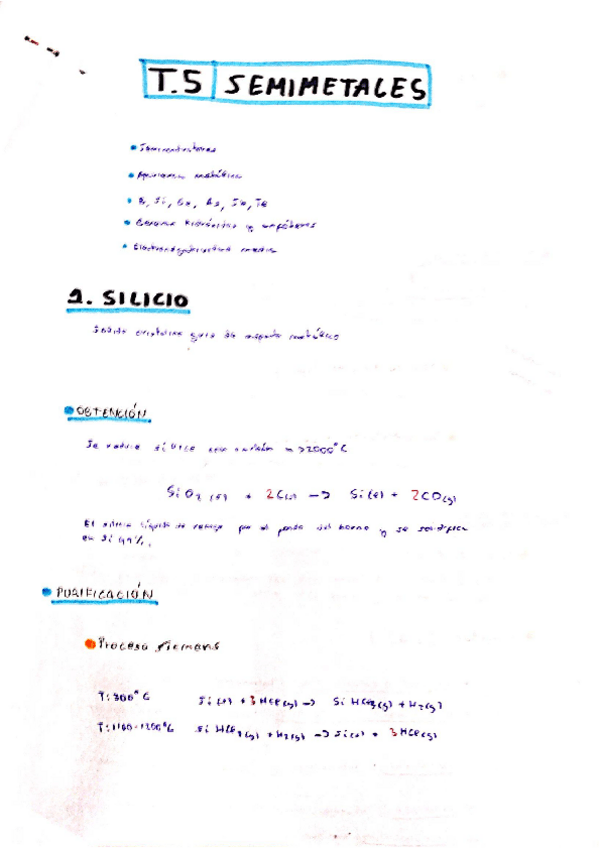 T.5 SEMIMETALES
• Semiconductores
• Apariencia metálica
• B, Si, Ge, As, Se, Te
• Carácter y anfóteros
• Electronegatividad media
1. SILICIO
Sólido cristalino gris de aspecto metálico
• OBTENCIÓN
Se reduce sílice con carbón >2000°C
SiO2 (s) + 2C(s) → Si(l) + 2CO(g)
El silicio líquido se recoge por el fondo del horno y se solidifica
en Si 99%.
• PURIFICACIÓN
• Proceso Siemens
T: 300°C Si(s) + 3HCl(g) → SiHCl3(g) + H2(g)
T: 1100-1200°C SiHCl3(g) + H2(g) → Si(s) + 3HCl(g)